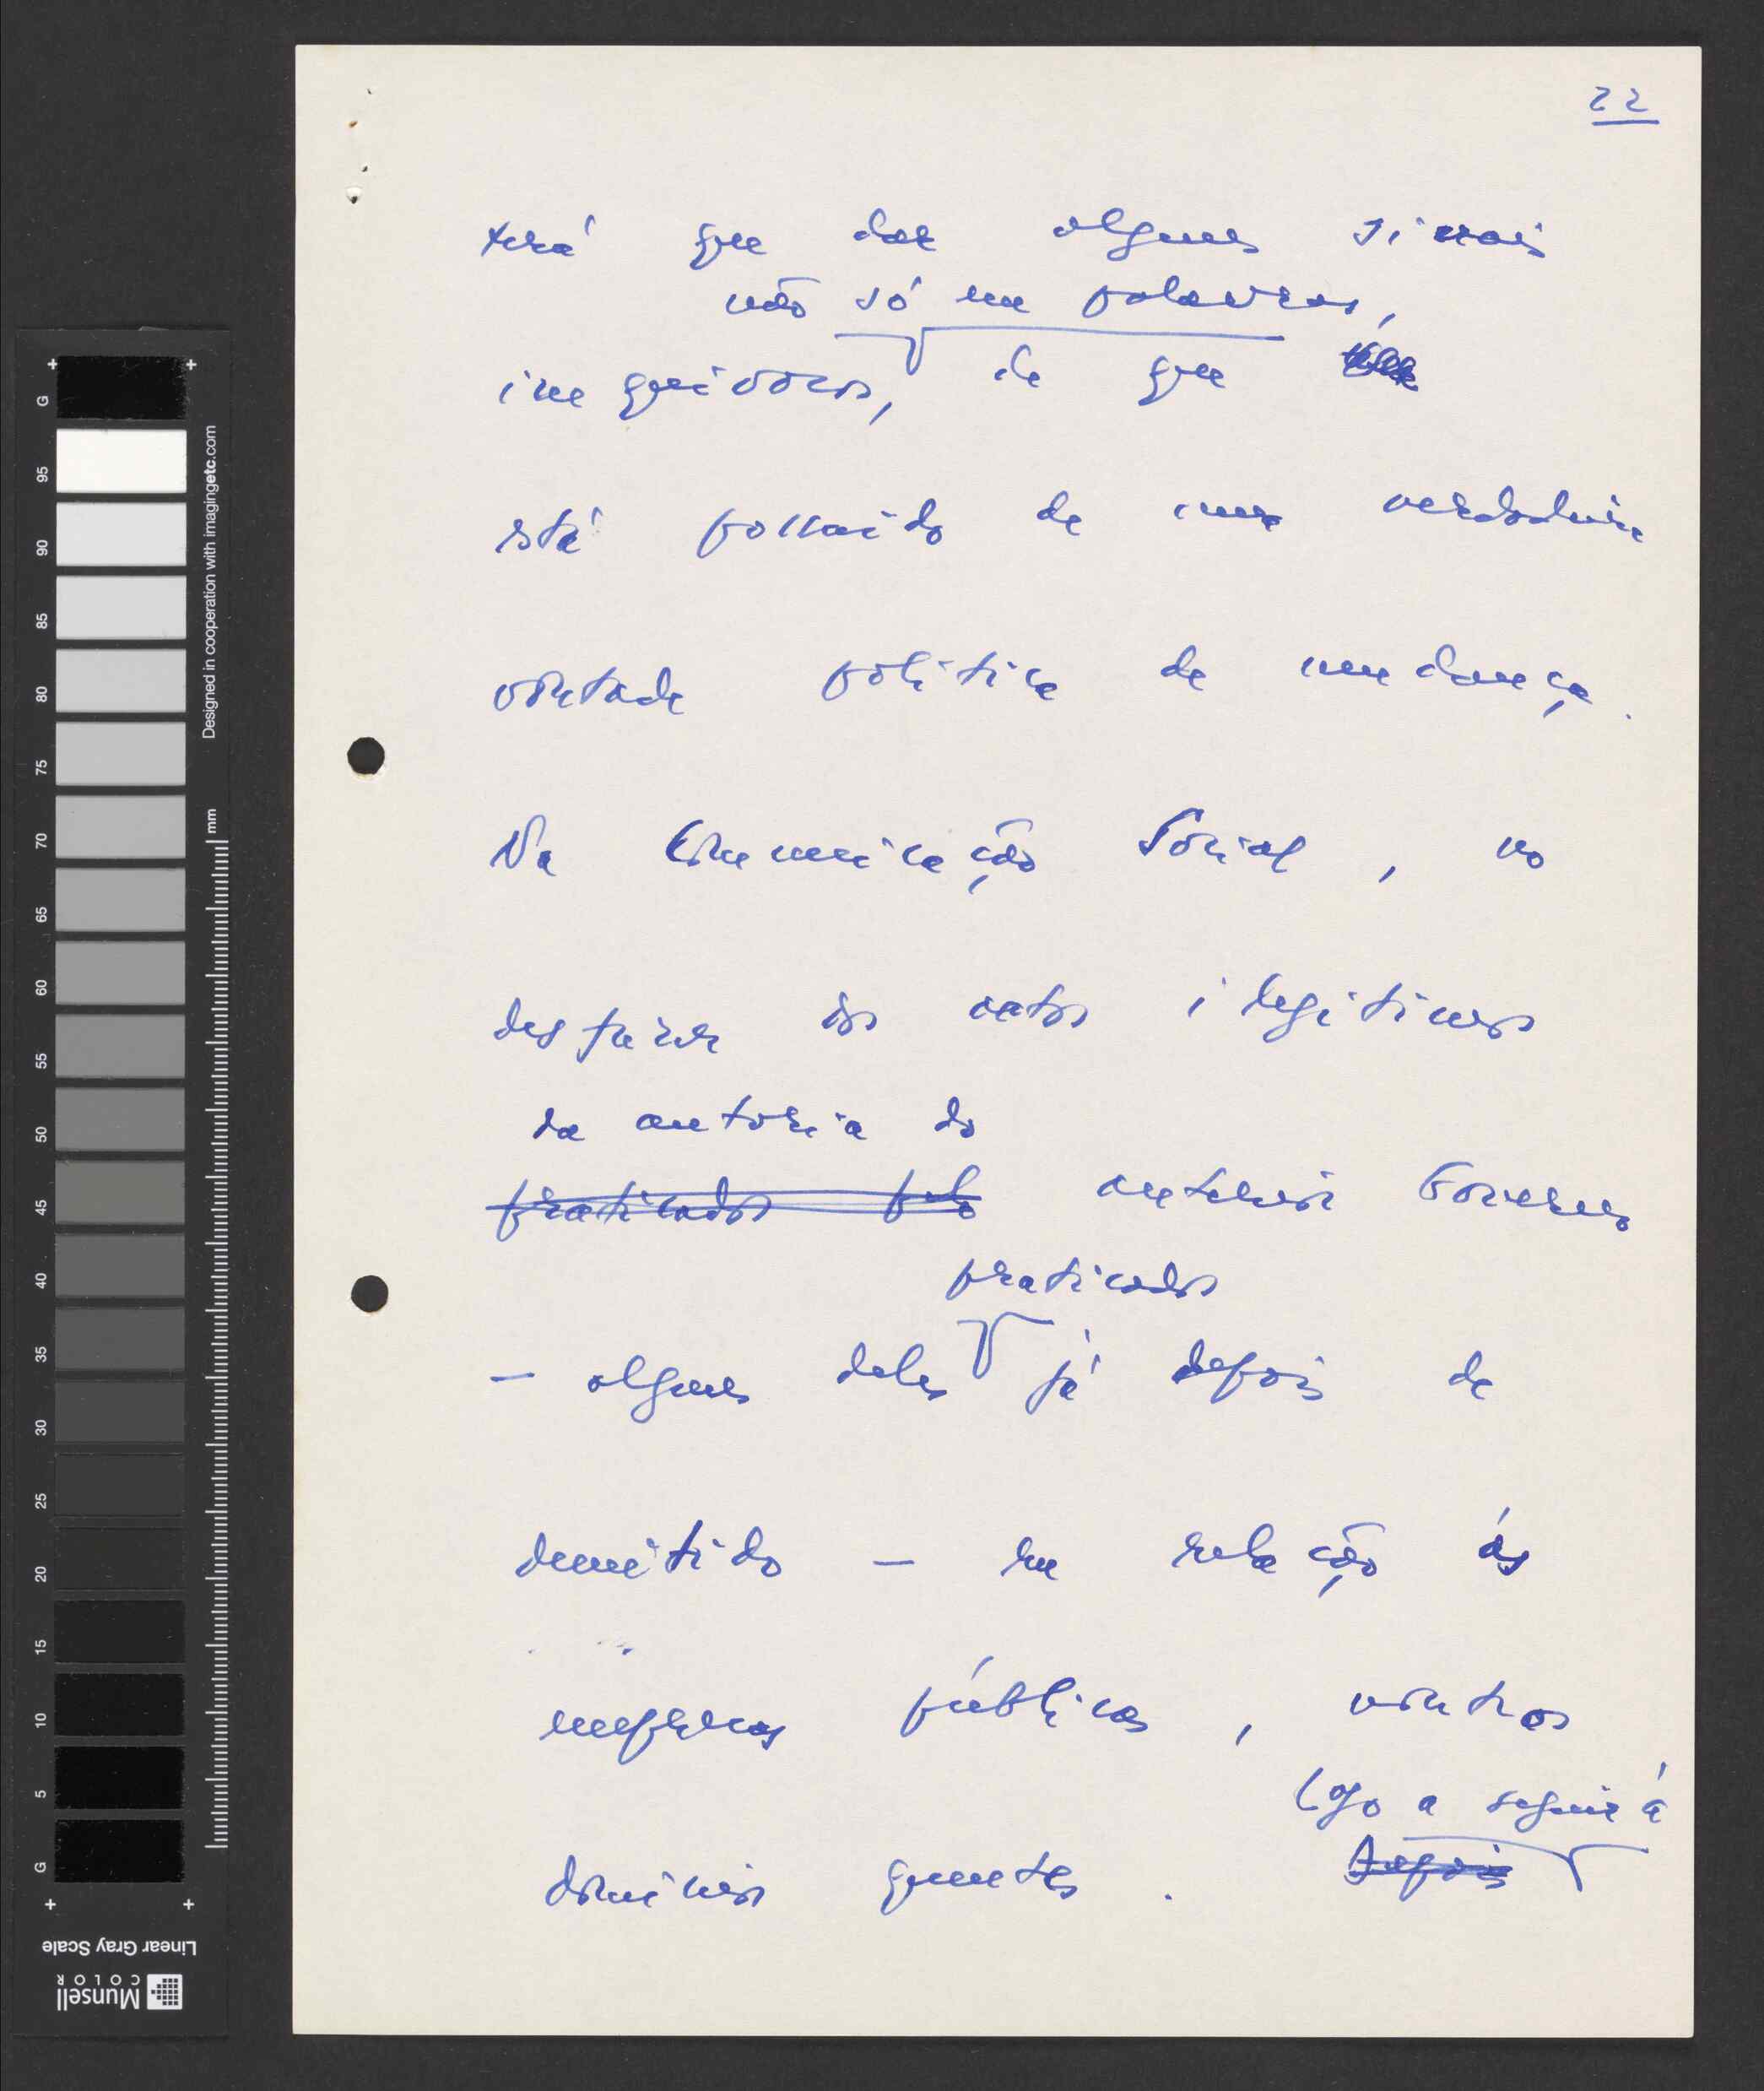 22
terá que dar alguns sinais
não só em palavras,
inequívocos, de que
está possuído de uma verdadeira
vontade política de mudança.
Na Comunicação Social, no
desfazer dos actos ilegítimos
da autoria do
praticados pelo anterior Governo
praticados
— alguns deles já depois de
demitido — em relação às
empresas públicas, noutros
logo a seguir à
domínios quentes. Depois
Designed in cooperation with imagingetc.com
mm
G
95
90
85
80
75
70
65
60
55
50
45
40
35
30
25
20
15
10
5
G
Linear Gray Scale
Munsell
COLOR